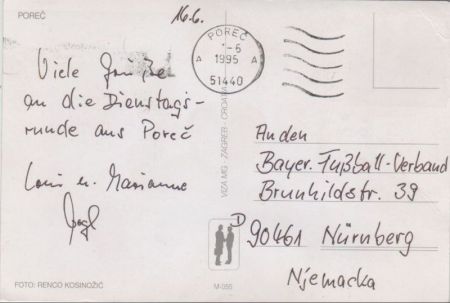 POREČ
16.6.
POREČ
1-6
1995
A A
51440
Viele Grüße
an die Dienstags-
runde aus Poreč
u. Marianne
An den
Bayer. Fußball-Verband
Brunhildstr. 39
D 90461 Nürnberg
Njemačka
VIZA MG - ZAGREB - CROATIA
FOTO: RENCO KOSINOŽIĆ
M-055